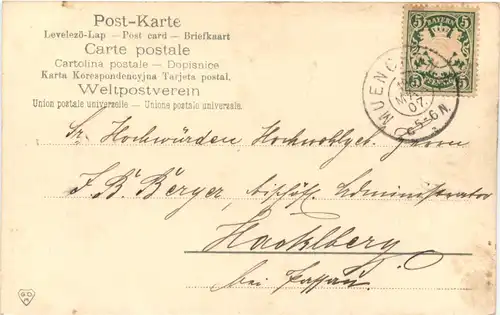 Post-Karte
Levelezö-Lap — Post card — Briefkaart
Carte postale
Cartolina postale — Dopisnice
Karta Korespondencyjna Tarjeta postal.
Weltpostverein
Union postale universelle — Unione postale universale.
5 BAYERN 5
MUENC
MAI
07.
5-6 N.
Sr. Hochwürden Hochwohlgeb. Herrn
J. B. Berger, bischöfl. Administrator
Hacklberg
bei Passau.